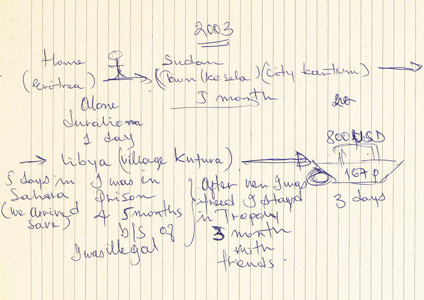 2003
Home
(Eritrea)
Alone
duration
1 day
Sudan
(Town (Kesela) (city kartum)
1 month
20
800 USD
167 P
3 days
Libya (village Kufura)
5 days in
Sahara
(we arrived
save)
I was in
Prison
4 5 months
b/s of
I was illegal
After when I was
freed I stayed
in Tropoly
3 month
with
friends.